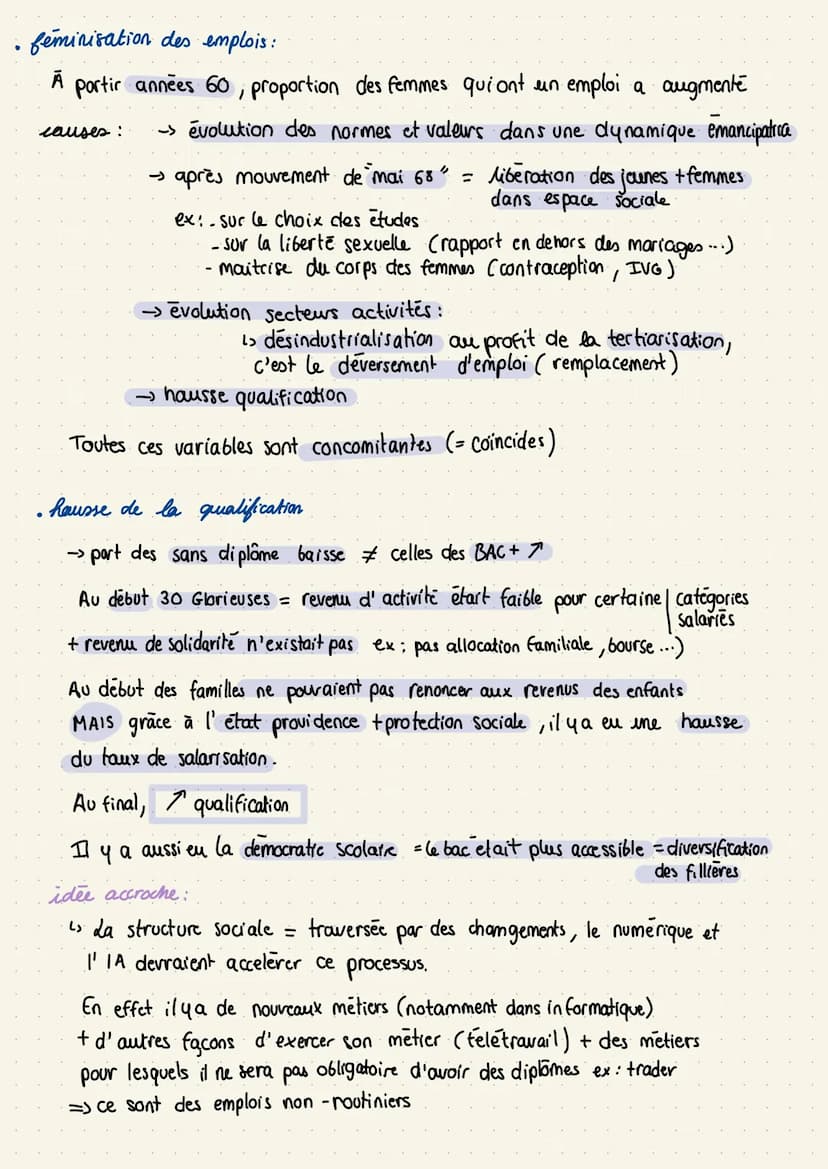 • féminisation des emplois :
À partir années 60, proportion des femmes qui ont un emploi a augmenté
causes : → évolution des normes et valeurs dans une dynamique émancipatrice
→ après mouvement de "mai 68" = libération des jaunes + femmes
dans espace sociale
ex: - sur le choix des études
- sur la liberté sexuelle (rapport en dehors des mariages ...)
- maitrise du corps des femmes (contraception, IVG)
→ évolution secteurs activités :
↳ désindustrialisation au profit de la tertiarisation,
c'est le déversement d'emploi (remplacement)
→ hausse qualification
Toutes ces variables sont concomitantes (= coïncides)
• hausse de la qualification
→ part des sans diplôme baisse ≠ celles des BAC+ ↗
Au début 30 Glorieuses = revenu d'activité était faible pour certaine | catégories
salariés
+ revenu de solidarité n'existait pas ex : pas allocation familiale, bourse ...)
Au début des familles ne pouvaient pas renoncer aux revenus des enfants
MAIS grâce à l'état providence + protection sociale, il y a eu une hausse
du taux de salarisation.
Au final, ↗ qualification
Il y a aussi eu la démocratie scolaire = le bac était plus accessible = diversification
des fillières
idée accroche :
↳ La structure sociale = traversée par des changements, le numérique et
l'IA devraient accélérer ce processus.
En effet il y a de nouveaux métiers (notamment dans informatique)
+ d'autres façons d'exercer son métier (télétravail) + des métiers
pour lesquels il ne sera pas obligatoire d'avoir des diplômes ex : trader
=> ce sont des emplois non-routiniers